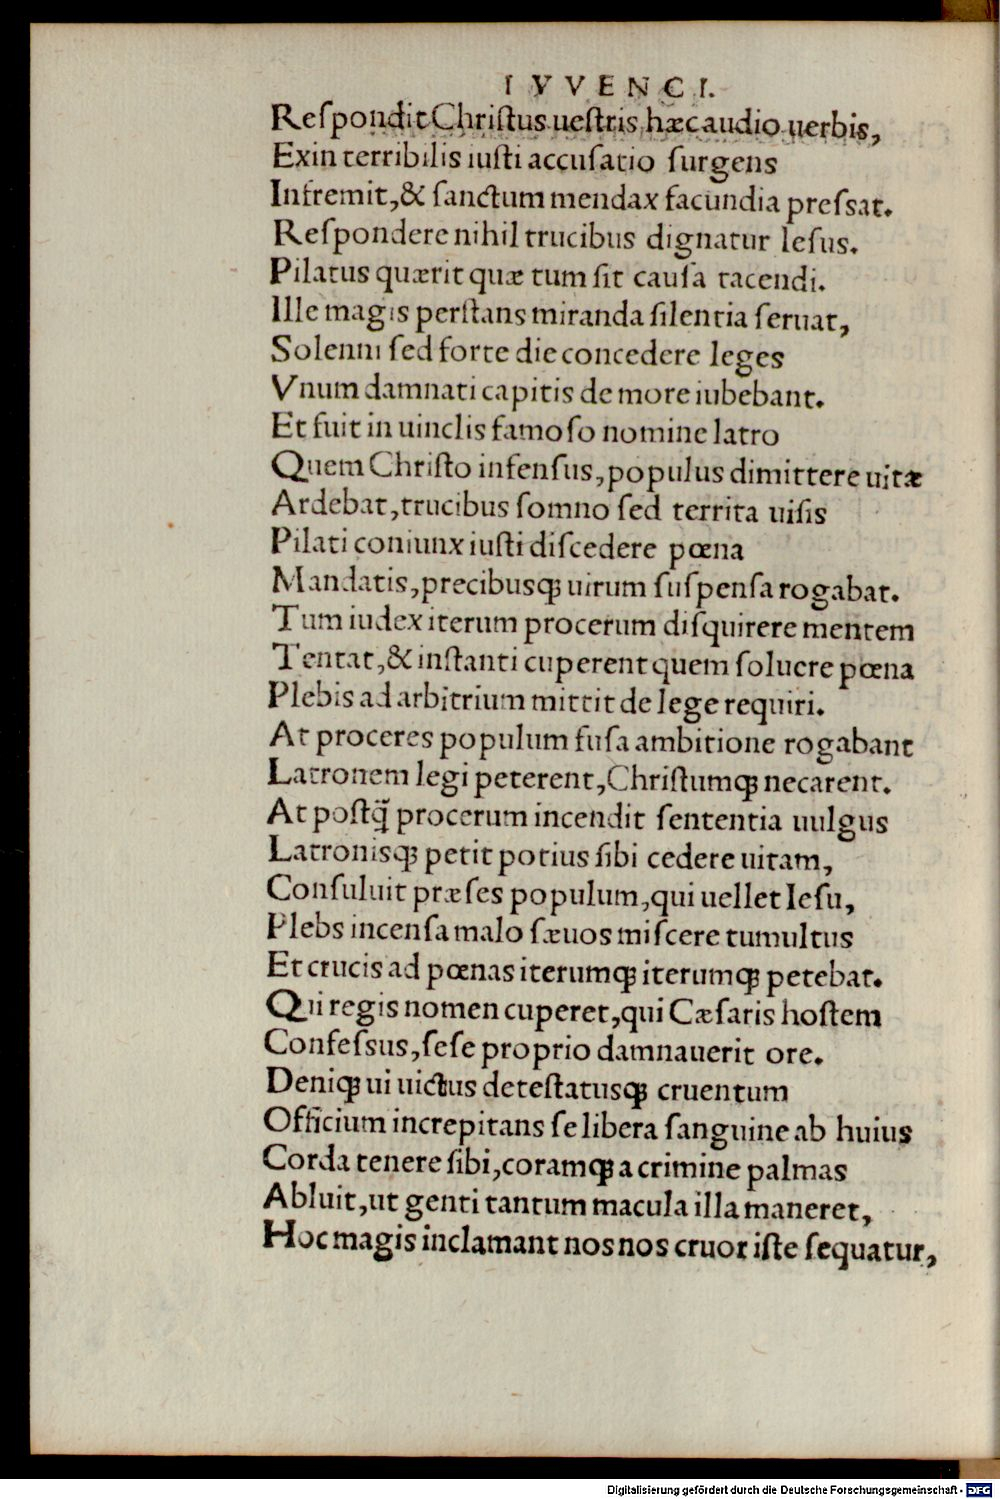 IVVENCI.
Reſpondit Chriſtus ueſtris hæc audio uerbis,
Exin terribilis iuſti accuſatio ſurgens
Infremit,& ſanctum mendax facundia preſsat.
Reſpondere nihil trucibus dignatur Ieſus.
Pilatus quærit quæ tum ſit cauſa tacendi.
Ille magis perſtans miranda ſilentia ſeruat,
Solenni ſed forte die concedere leges
Vnum damnati capitis de more iubebant.
Et fuit in uinclis famoſo nomine latro
Quem Chriſto infenſus, populus dimittere uitæ
Ardebat, trucibus ſomno ſed territa uiſis
Pilati coniunx iuſti diſcedere pœna
Mandatis, precibusq; uirum ſuſpenſa rogabat.
Tum iudex iterum procerum diſquirere mentem
Tentat,& inſtanti cuperent quem ſoluere pœna
Plebis ad arbitrium mittit de lege requiri.
At proceres populum fuſa ambitione rogabant
Latronem legi peterent, Chriſtumq; necarent.
At poſtq̃ procerum incendit ſententia uulgus
Latronisq; petit potius ſibi cedere uitam,
Conſuluit præſes populum, qui uellet Ieſu,
Plebs incenſa malo ſæuos miſcere tumultus
Et crucis ad pœnas iterumq; iterumq; petebat.
Qui regis nomen cuperet, qui Cæſaris hoſtem
Confeſsus, ſeſe proprio damnauerit ore.
Deniq; ui uictus deteſtatusq; cruentum
Officium increpitans ſe libera ſanguine ab huius
Corda tenere ſibi, coramq; a crimine palmas
Abluit, ut genti tantum macula illa maneret,
Hoc magis inclamant nos nos cruor iſte ſequatur,
Digitalisierung gefördert durch die Deutsche Forschungsgemeinschaft - DFG